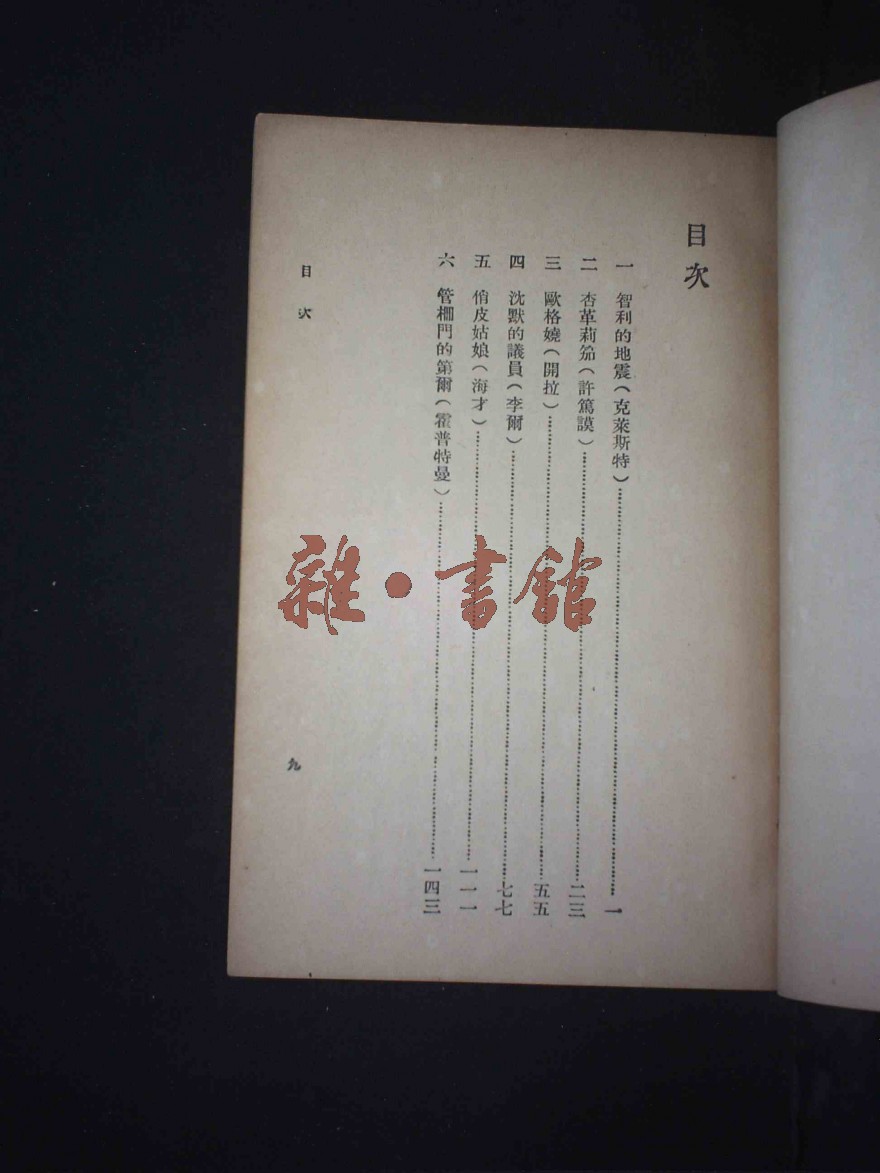 目次
一 智利的地震(克萊斯特)……一
二 杏革莉笳(許篤謨)……二三
三 歐格嬈(開拉)……五五
四 沈默的議員(李爾)……七七
五 俏皮姑娘(海才)……一一一
六 管柵門的第爾(霍普特曼)……一四三
目次
九
雜·書館